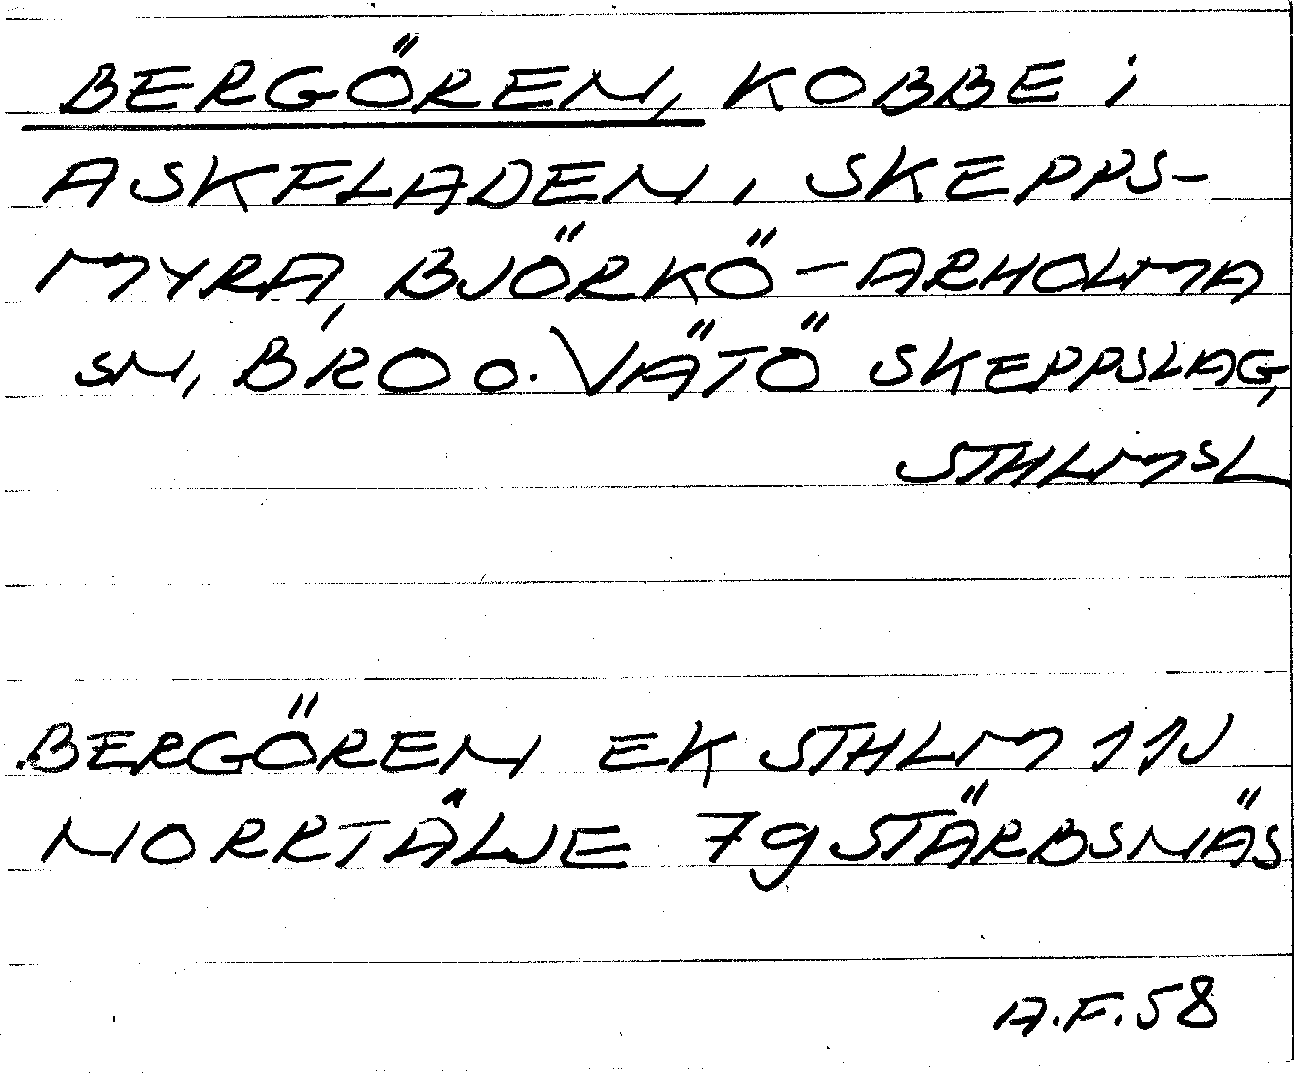 BERGÖREN, KOBBE i
ASKFLADEN, SKEPPS-
MYRA, BJÖRKÖ-ARHOLMA
SN, BRO O. VÄTÖ SKEPPSLAG,
STHLMSL
BERGÖREN EK STHLM 11J
NORRTÄLJE 79 STÄRBSNÄS
A.F. 58